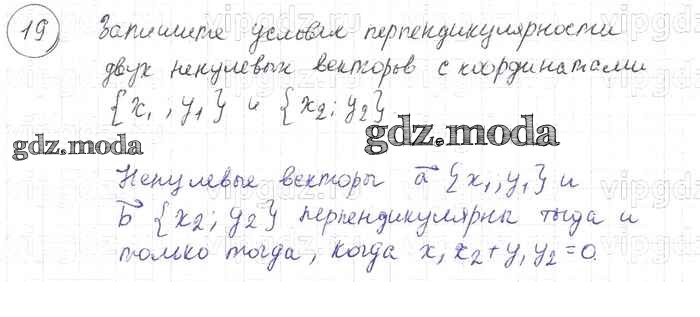 19 Запишите условия перпендикулярности
двух ненулевых векторов с координатами
{x₁; y₁} и {x₂; y₂}.
gdz.moda
gdz.moda
Ненулевые векторы a⃗ {x₁; y₁} и
b⃗ {x₂; y₂} перпендикулярны тогда и
только тогда, когда x₁x₂+y₁y₂=0.